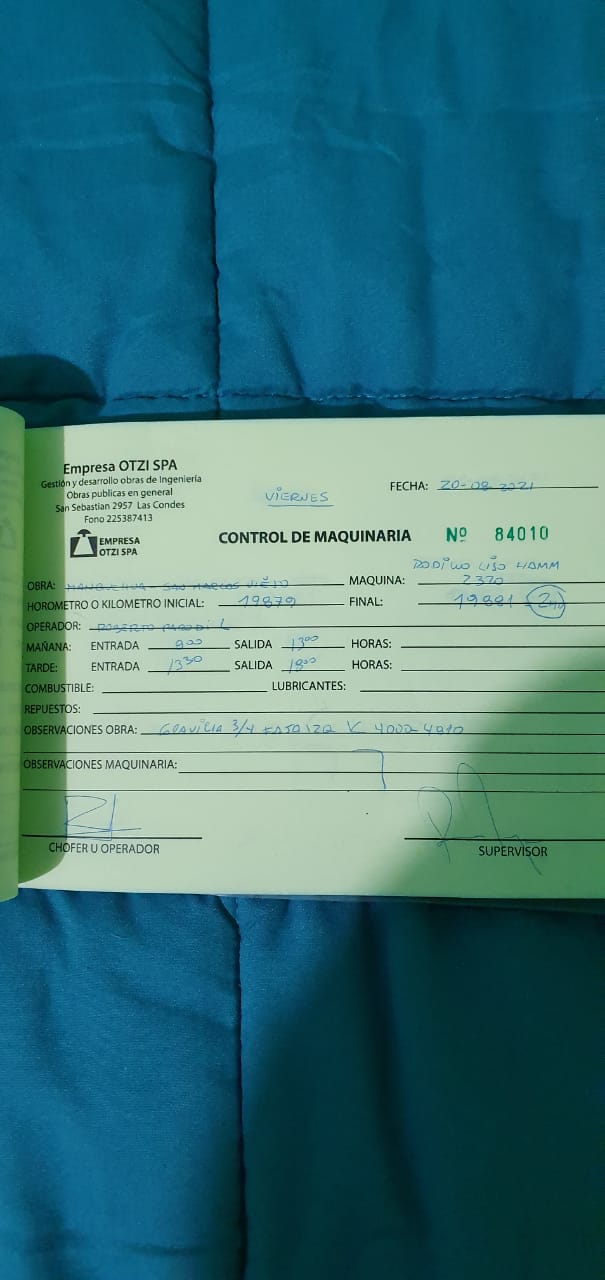 Empresa OTZI SPA
Gestión y desarrollo obras de Ingeniería
Obras publicas en general
San Sebastian 2957 Las Condes
Fono 225387413
EMPRESA
OTZI SPA
VIERNES
FECHA: 20-08-2021
CONTROL DE MAQUINARIA Nº 84010
RODILLO LISO HAMM
OBRA: SAN MARCOS VIEJO MAQUINA: 2370
HOROMETRO O KILOMETRO INICIAL: 19879 FINAL: 19881
OPERADOR: ROBERTO L
MAÑANA: ENTRADA 9:00 SALIDA 13:00 HORAS:
TARDE: ENTRADA 13:30 SALIDA 18:00 HORAS:
COMBUSTIBLE: LUBRICANTES:
REPUESTOS:
OBSERVACIONES OBRA: GRAVILLA 3/4
OBSERVACIONES MAQUINARIA:
CHOFER U OPERADOR
SUPERVISOR